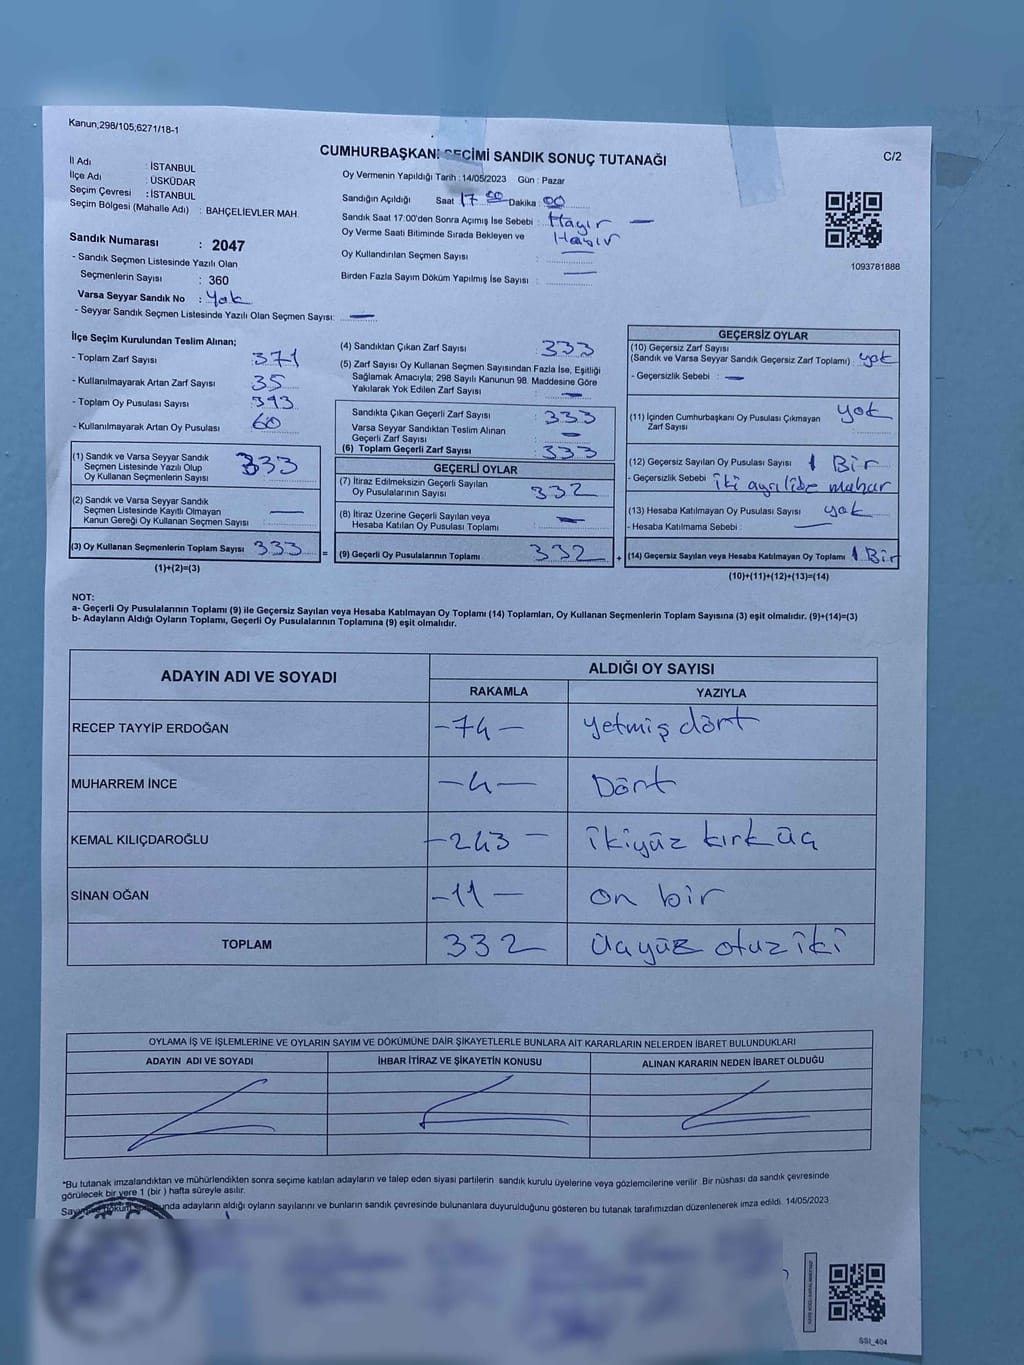 Kanun,298/105,6271/18-1
C/2
CUMHURBAŞKANI SEÇİMİ SANDIK SONUÇ TUTANAĞI
İl Adı : İSTANBUL
İlçe Adı : ÜSKÜDAR
Seçim Çevresi : İSTANBUL
Seçim Bölgesi (Mahalle Adı) : BAHÇELİEVLER MAH.
Sandık Numarası : 2047
- Sandık Seçmen Listesinde Yazılı Olan
Seçmenlerin Sayısı : 360
Varsa Seyyar Sandık No : Yok
- Seyyar Sandık Seçmen Listesinde Yazılı Olan Seçmen Sayısı: —
Oy Vermenin Yapıldığı Tarih : 14/05/2023 Gün : Pazar
Sandığın Açıldığı Saat 17 Dakika : 00
Sandık Saat 17:00'den Sonra Açımış İse Sebebi : Hayır —
Oy Verme Saati Bitiminde Sırada Bekleyen ve Hayır
Oy Kullandırılan Seçmen Sayısı : —
Birden Fazla Sayım Döküm Yapılmış İse Sayısı : —
1093781888
İlçe Seçim Kurulundan Teslim Alınan;
- Toplam Zarf Sayısı 371
- Kullanılmayarak Artan Zarf Sayısı 35
- Toplam Oy Pusulası Sayısı 393
- Kullanılmayarak Artan Oy Pusulası 60
(1) Sandık ve Varsa Seyyar Sandık
Seçmen Listesinde Yazılı Olup
Oy Kullanan Seçmenlerin Sayısı 333
(2) Sandık ve Varsa Seyyar Sandık
Seçmen Listesinde Kayıtlı Olmayan
Kanun Gereği Oy Kullanan Seçmen Sayısı : —
(3) Oy Kullanan Seçmenlerin Toplam Sayısı 333 =
(1)+(2)=(3)
(4) Sandıktan Çıkan Zarf Sayısı : 333
(5) Zarf Sayısı Oy Kullanan Seçmen Sayısından Fazla İse, Eşitliği
Sağlamak Amacıyla; 298 Sayılı Kanunun 98. Maddesine Göre
Yakılarak Yok Edilen Zarf Sayısı : —
Sandıkta Çıkan Geçerli Zarf Sayısı : 333
Varsa Seyyar Sandıktan Teslim Alınan
Geçerli Zarf Sayısı : —
(6) Toplam Geçerli Zarf Sayısı : 333
GEÇERLİ OYLAR
(7) İtiraz Edilmeksizin Geçerli Sayılan
Oy Pusulalarının Sayısı : 332
(8) İtiraz Üzerine Geçerli Sayılan veya
Hesaba Katılan Oy Pusulası Toplamı : —
(9) Geçerli Oy Pusulalarının Toplamı : 332 +
GEÇERSİZ OYLAR
(10) Geçersiz Zarf Sayısı
(Sandık ve Varsa Seyyar Sandık Geçersiz Zarf Toplamı) : yok
- Geçersizlik Sebebi : —
(11) İçinden Cumhurbaşkanı Oy Pusulası Çıkmayan yok
Zarf Sayısı :
(12) Geçersiz Sayılan Oy Pusulası Sayısı : 1 Bir
- Geçersizlik Sebebi : iki ayrı
(13) Hesaba Katılmayan Oy Pusulası Sayısı : yok
- Hesaba Katılmama Sebebi : —
(14) Geçersiz Sayılan veya Hesaba Katılmayan Oy Toplamı 1 Bir
(10)+(11)+(12)+(13)=(14)
NOT:
a- Geçerli Oy Pusulalarının Toplamı (9) ile Geçersiz Sayılan veya Hesaba Katılmayan Oy Toplamı (14) Toplamları, Oy Kullanan Seçmenlerin Toplam Sayısına (3) eşit olmalıdır. (9)+(14)=(3)
b- Adayların Aldığı Oyların Toplamı, Geçerli Oy Pusulalarının Toplamına (9) eşit olmalıdır.
ADAYIN ADI VE SOYADI ALDIĞI OY SAYISI
RAKAMLA YAZIYLA
RECEP TAYYİP ERDOĞAN -74- yetmiş dört
MUHARREM İNCE -4- Dört
KEMAL KILIÇDAROĞLU -243- ikiyüz kırk üç
SİNAN OĞAN -11- on bir
TOPLAM 332 üçyüz otuz iki
OYLAMA İŞ VE İŞLEMLERİNE VE OYLARIN SAYIM VE DÖKÜMÜNE DAİR ŞİKAYETLERLE BUNLARA AİT KARARLARIN NELERDEN İBARET BULUNDUKLARI
ADAYIN ADI VE SOYADI İHBAR İTİRAZ VE ŞİKAYETİN KONUSU ALINAN KARARIN NEDEN İBARET OLDUĞU
*Bu tutanak imzalandıktan ve mühürlendikten sonra seçime katılan adayların ve talep eden siyasi partilerin sandık kurulu üyelerine veya gözlemcilerine verilir. Bir nüshası da sandık çevresinde
görülecek bir yere 1 (bir ) hafta süreyle asılır.
adayların aldığı oyların sayılarını ve bunların sandık çevresinde bulunanlara duyurulduğunu gösteren bu tutanak tarafımızdan düzenlenerek imza edildi. 14/05/2023
SSI_404